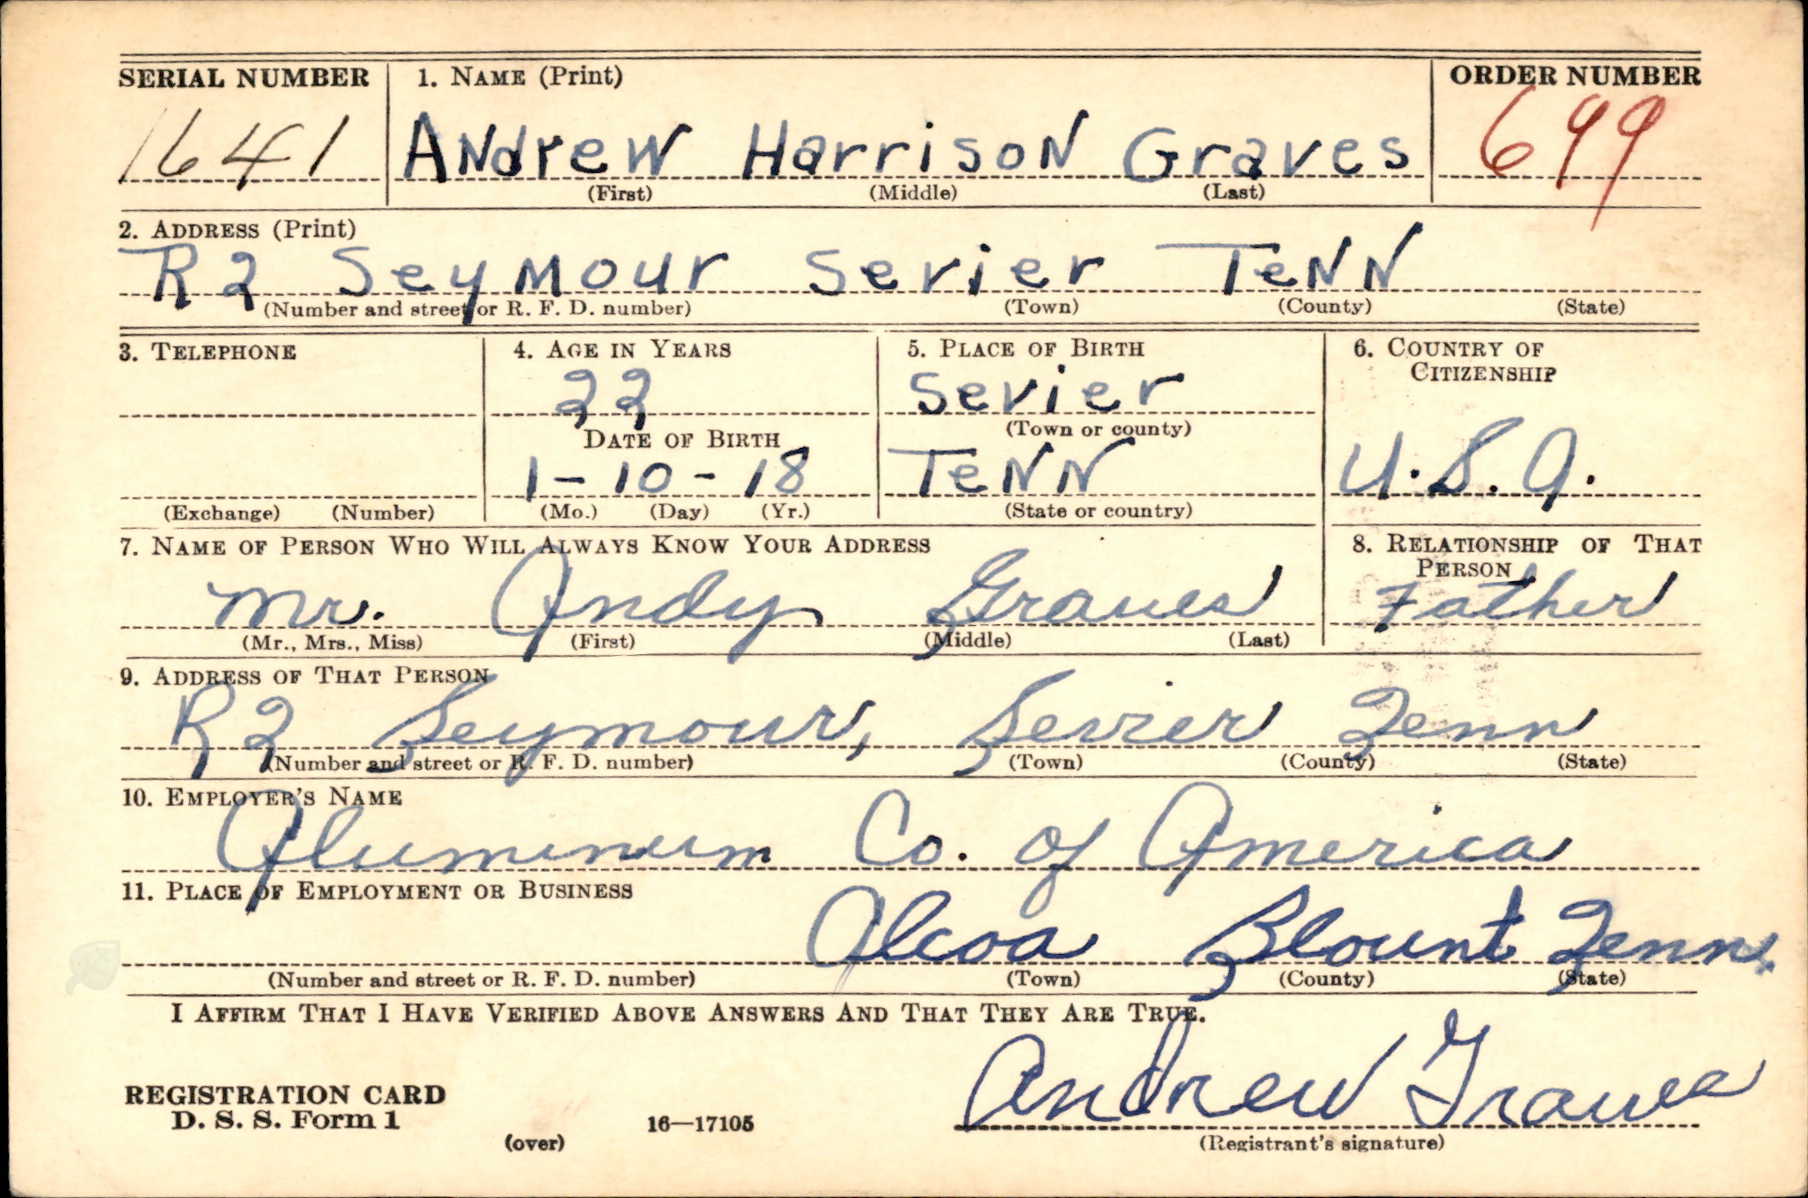 SERIAL NUMBER 1. NAME (Print) ORDER NUMBER
1641 ANdreW HarrisoN Graves 699
(First) (Middle) (Last)
2. ADDRESS (Print)
R2 SeyMour Sevier TeNN
(Number and street or R. F. D. number) (Town) (County) (State)
3. TELEPHONE 4. AGE IN YEARS 5. PLACE OF BIRTH 6. COUNTRY OF CITIZENSHIP
22 Sevier
(Town or county)
DATE OF BIRTH
1-10-18 TeNN U.S.A.
(Exchange) (Number) (Mo.) (Day) (Yr.) (State or country)
7. NAME OF PERSON WHO WILL ALWAYS KNOW YOUR ADDRESS 8. RELATIONSHIP OF THAT PERSON
Mr. Andy Graves Father
(Mr., Mrs., Miss) (First) (Middle) (Last)
9. ADDRESS OF THAT PERSON
R2 Seymour, Sevier Tenn
(Number and street or R. F. D. number) (Town) (County) (State)
10. EMPLOYER'S NAME
Aluminum Co. of America
11. PLACE OF EMPLOYMENT OR BUSINESS
Alcoa Blount Tenn.
(Number and street or R. F. D. number) (Town) (County) (State)
I AFFIRM THAT I HAVE VERIFIED ABOVE ANSWERS AND THAT THEY ARE TRUE.
REGISTRATION CARD
D. S. S. Form 1
Andrew Graves
(over) 16—17105 (Registrant's signature)